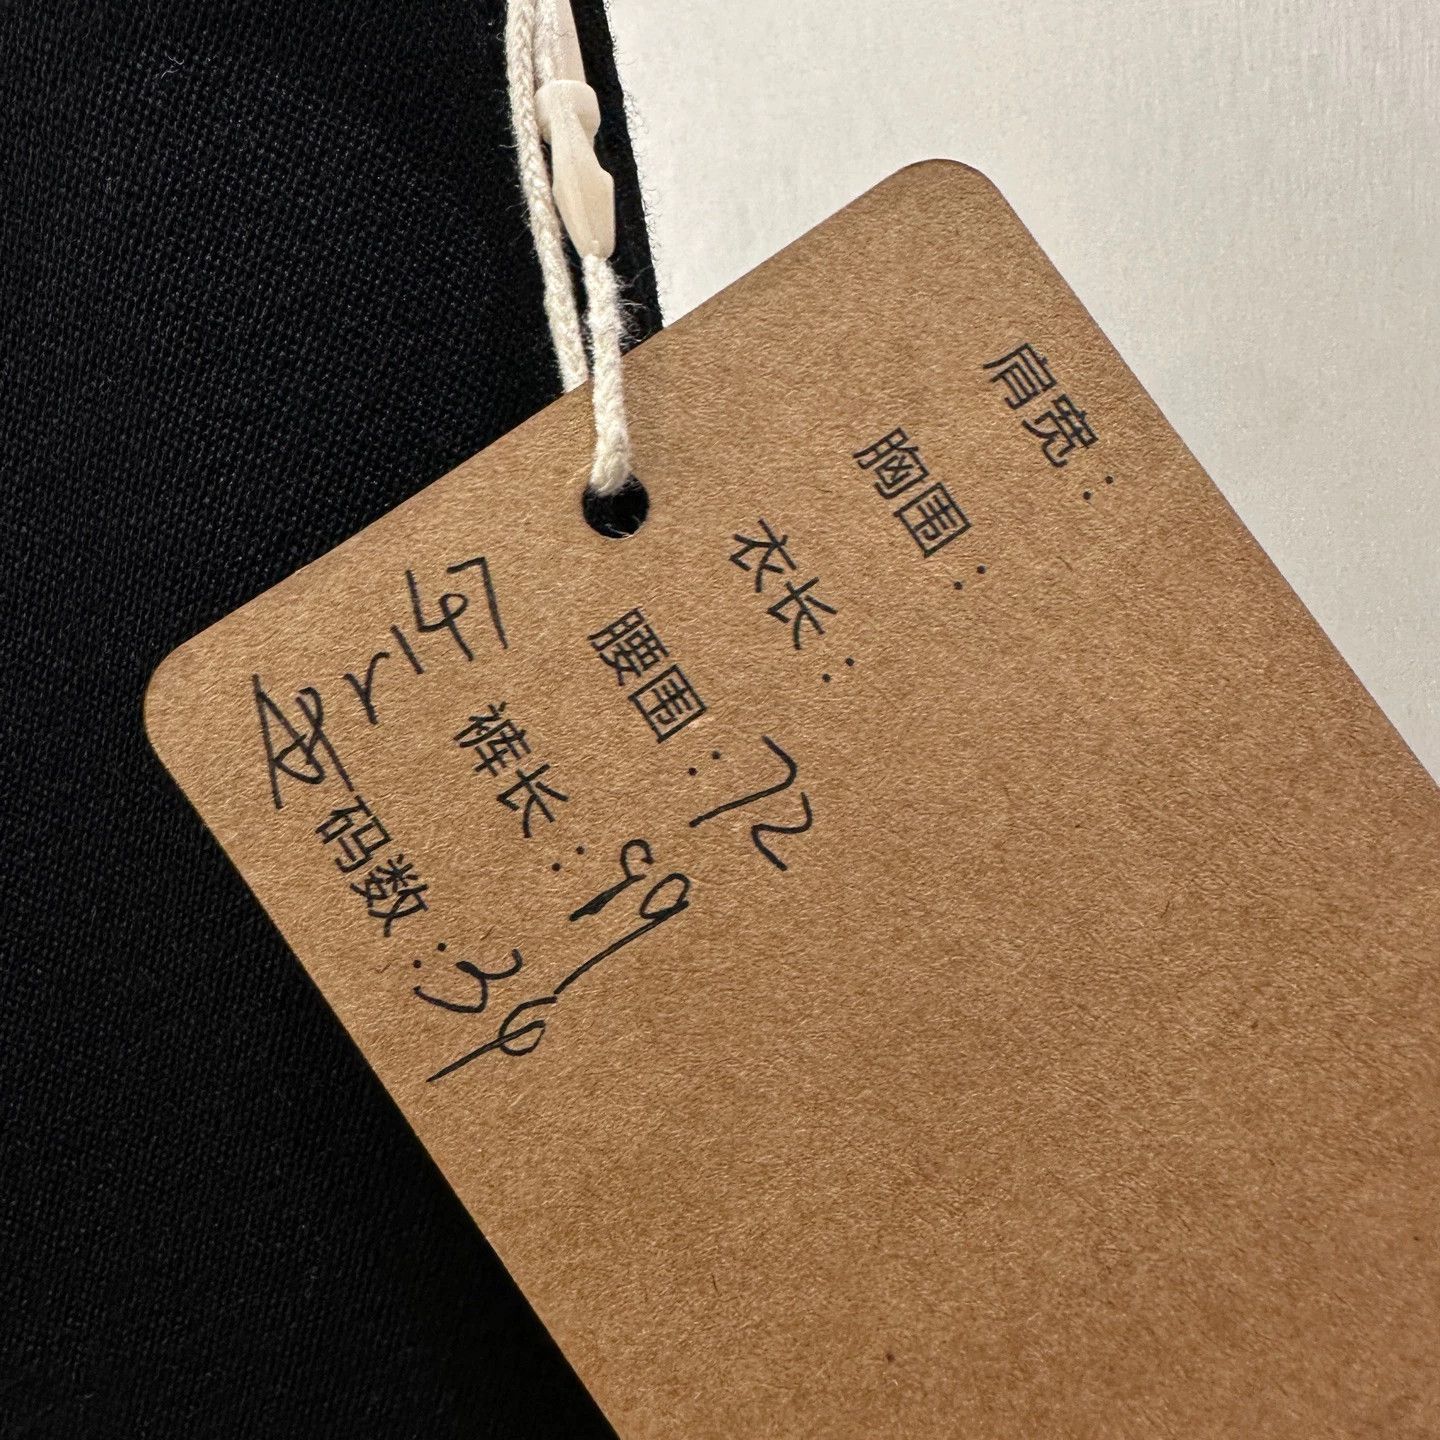 肩宽：
胸围：
衣长：
腰围：72
裤长：99
码数：